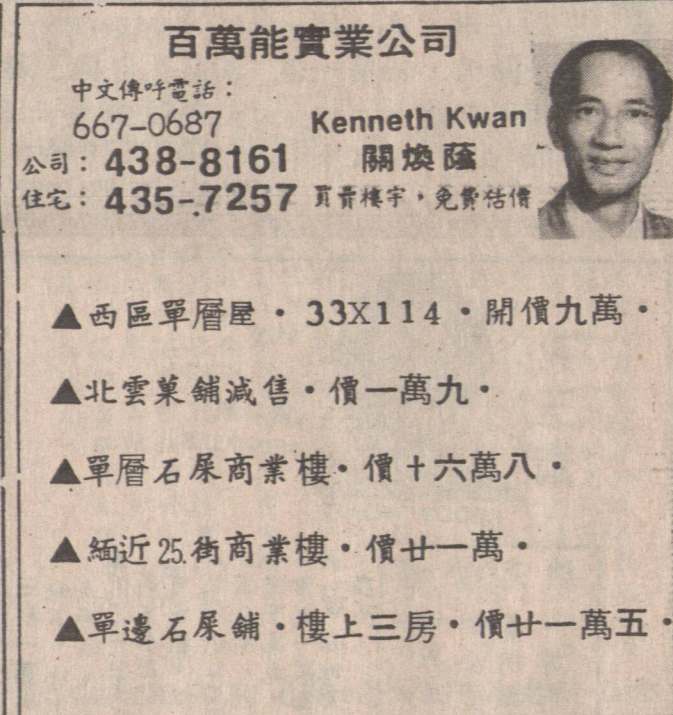 百萬能實業公司
中文傳呼電話：
667-0687
公司：438-8161
住宅：435-7257
Kenneth Kwan
關煥蔭
買賣樓宇，免費估價
▲西區單層屋・33X114・開價九萬・
▲北雲菓舖減售・價一萬九・
▲單層石屎商業樓・價十六萬八・
▲緬近25.街商業樓・價廿一萬・
▲單邊石屎舖・樓上三房・價廿一萬五・